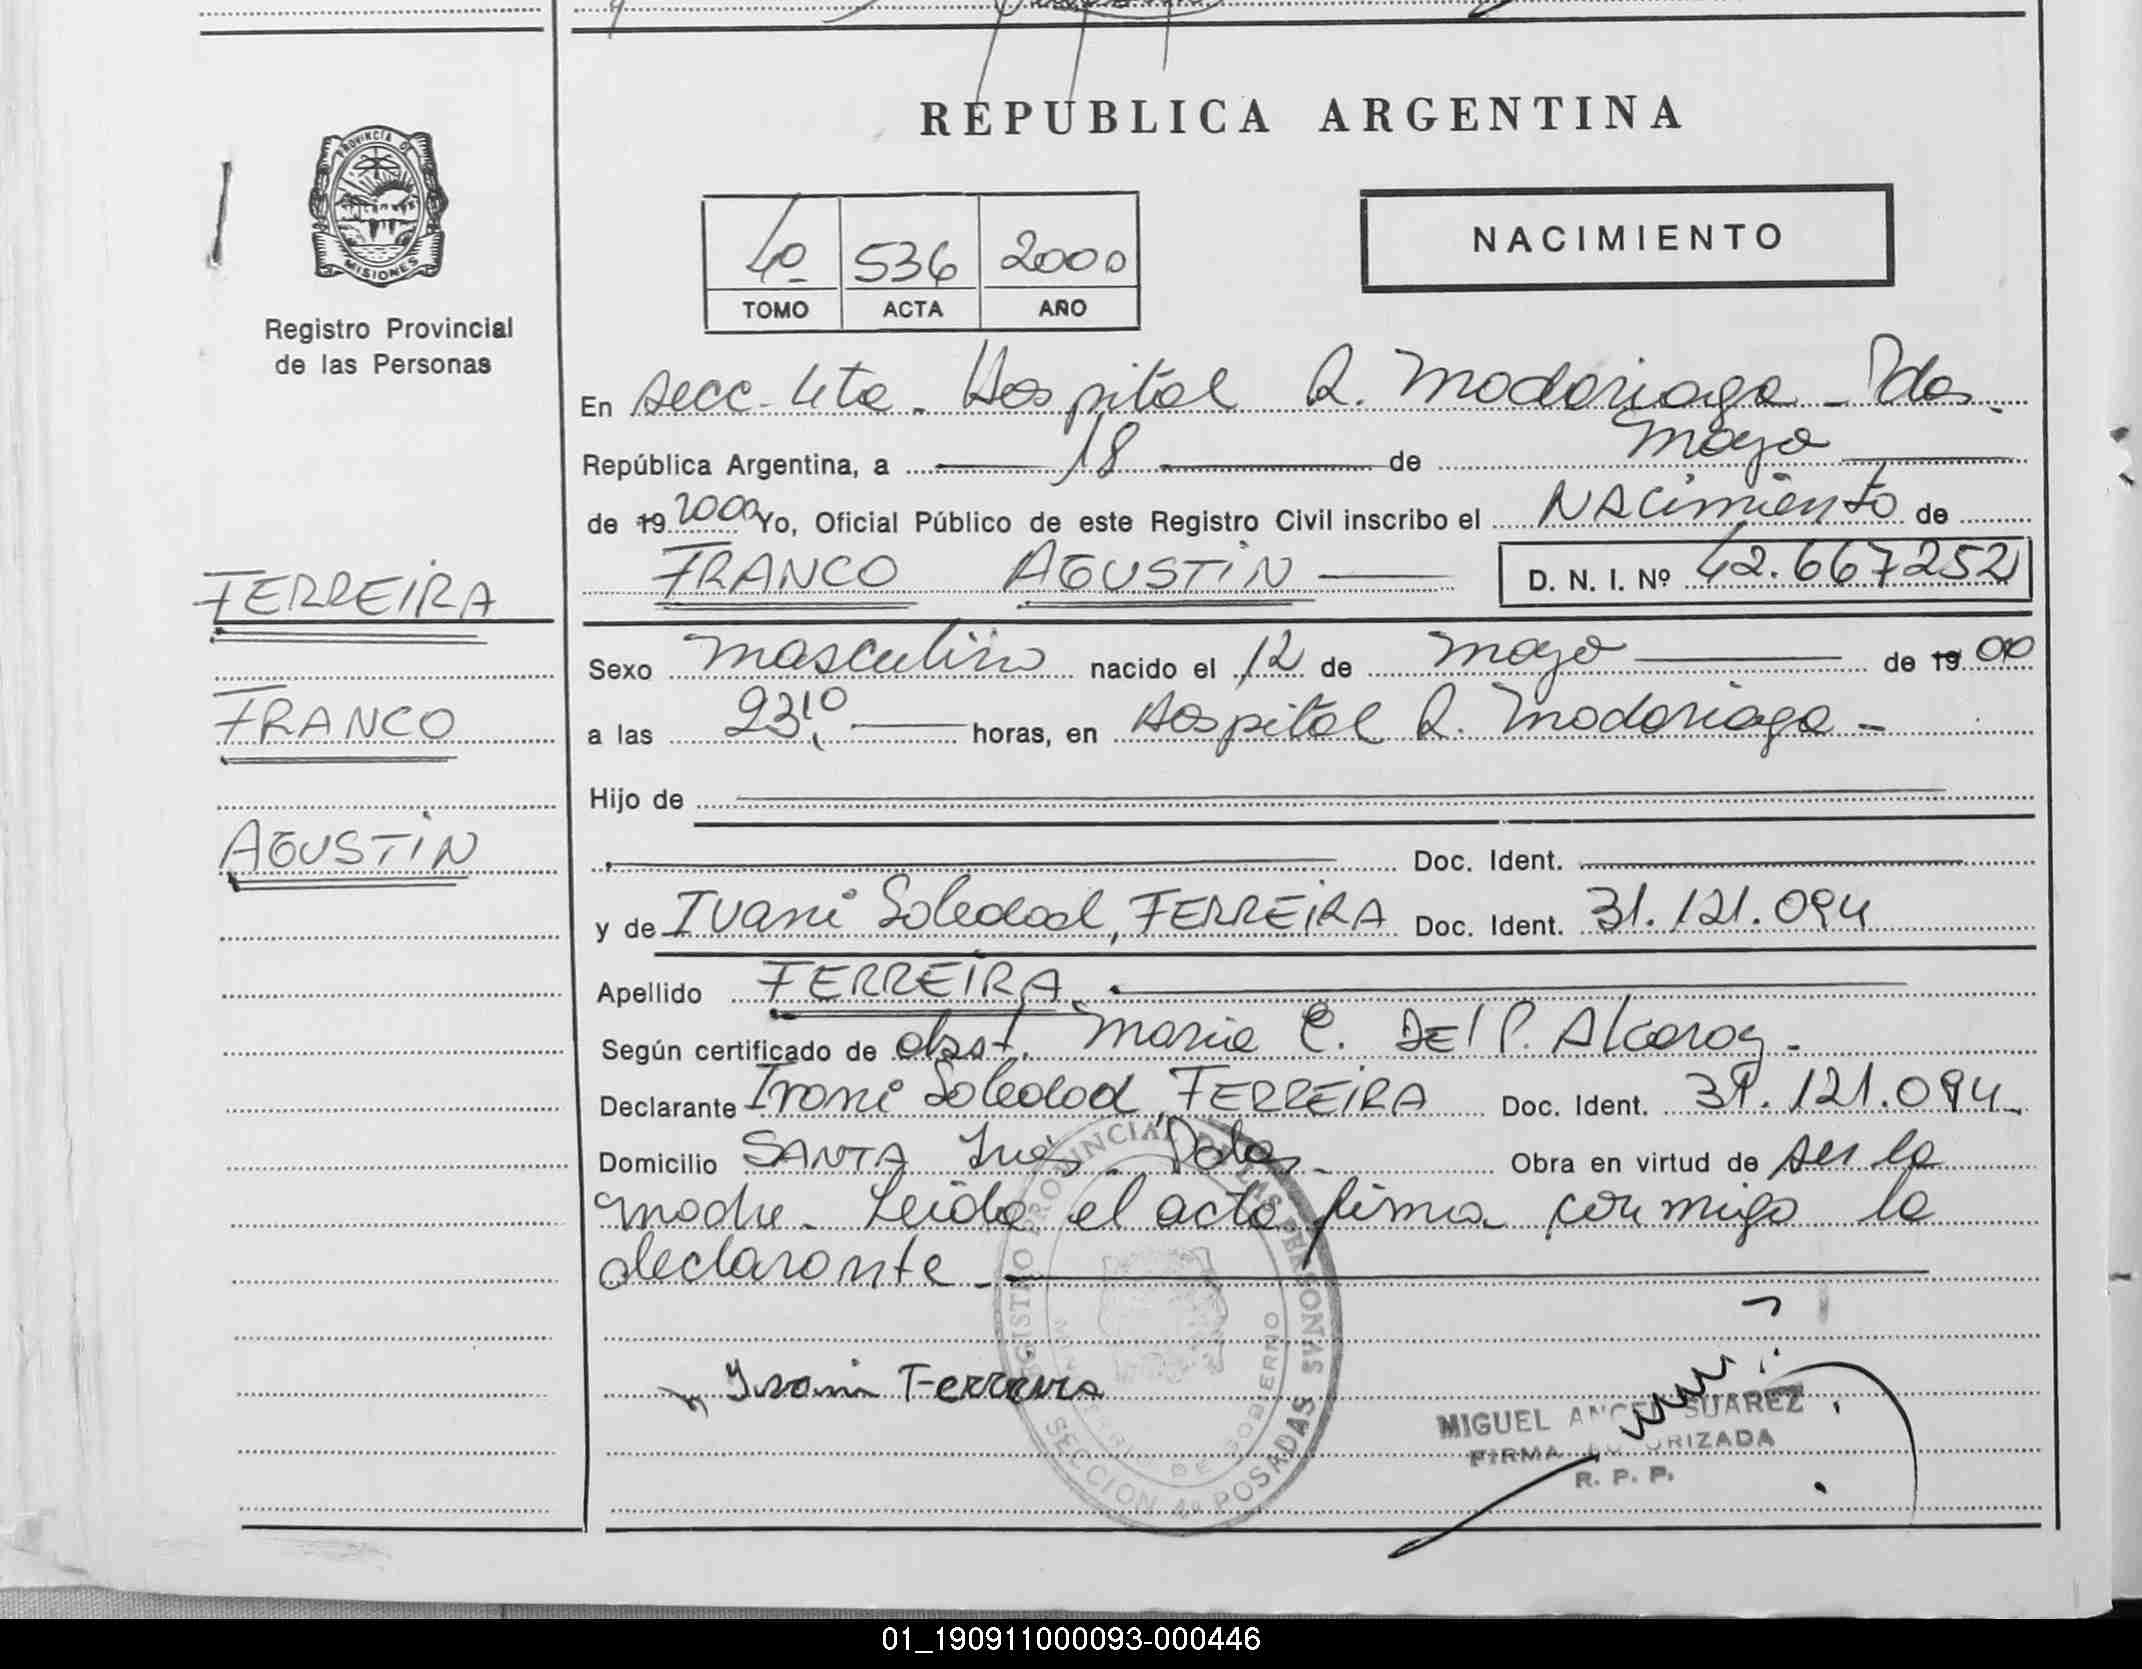 REPUBLICA ARGENTINA
PROVINCIA DE
MISIONES
Registro Provincial
de las Personas
4º 536 2000
TOMO ACTA AÑO
NACIMIENTO
En secc- 4ta. Hospital R. Madariaga - Pdas.
República Argentina, a 18 de mayo
de 19 2000 Yo, Oficial Público de este Registro Civil inscribo el NACimiento de
FRANCO AGUSTIN D. N. I. Nº 42.667252
FERREIRA
FRANCO
AGUSTIN
Sexo masculino nacido el 12 de mayo de 19 00
a las 23,10 horas, en Hospital R. Madariaga -
Hijo de
Doc. Ident.
y de Ivani Soledad, FERREIRA Doc. Ident. 31.121.094
Apellido FERREIRA
Según certificado de obst. Maria C. DEl P. Alcaraz -
Declarante Ivani Soledad, FERREIRA Doc. Ident. 31.121.094
Domicilio SANTA Inés - Pdas. Obra en virtud de ser la
madre - Leida el acta firma conmigo la
declarante -
REGISTRO PROVINCIAL DE LAS PERSONAS
SECCION 4º POSADAS
DE GOBIERNO
Ivani Ferreira
MIGUEL ANGEL SUAREZ
FIRMA AUTORIZADA
R. P. P.
01_190911000093-000446